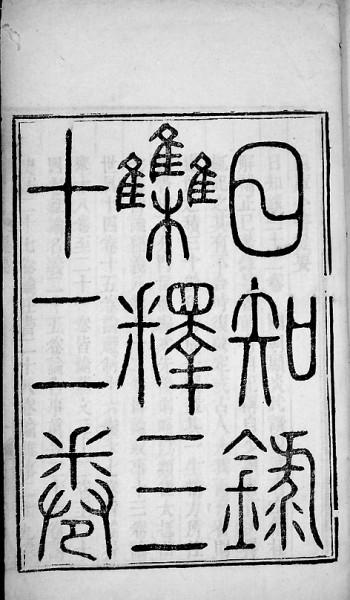 日知錄
集釋三
十二卷